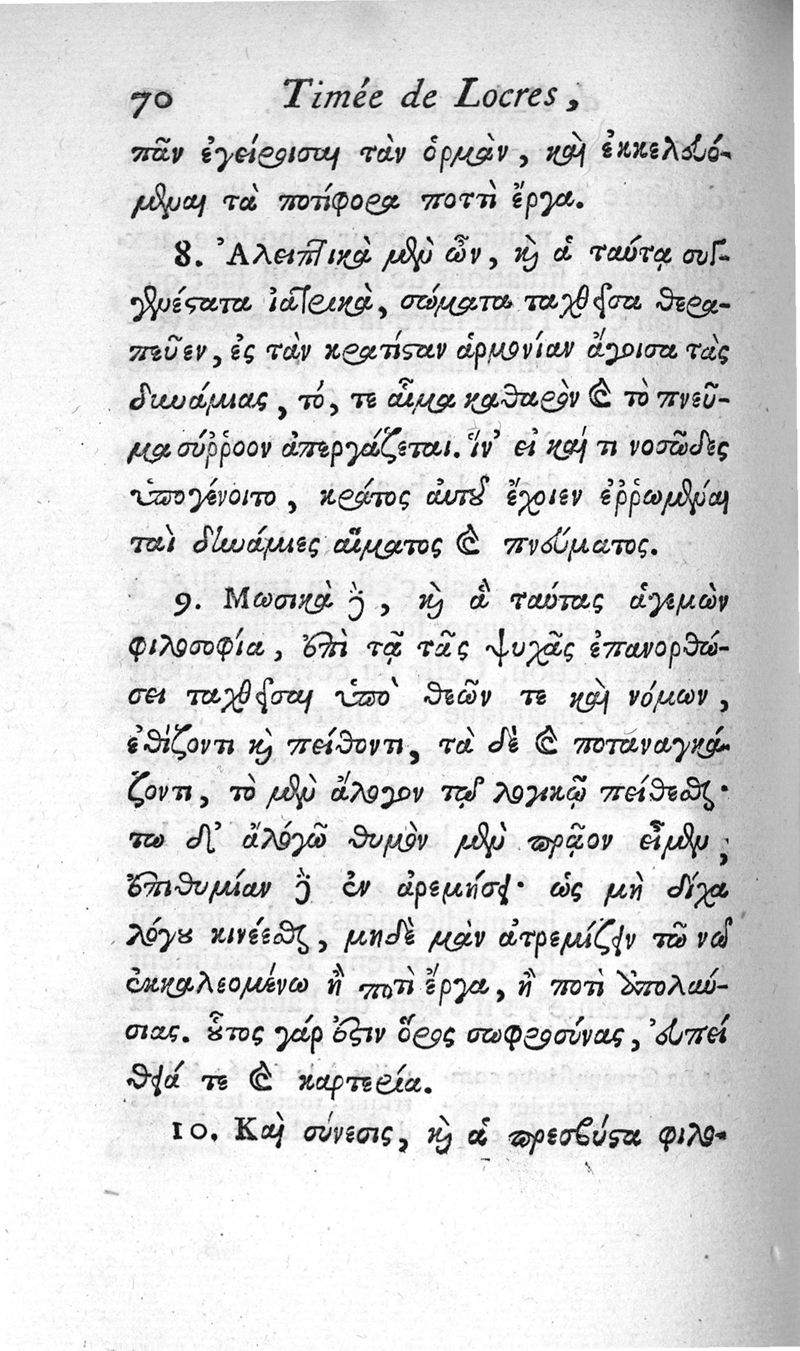 70 Timée de Locres,
πᾶν ἐγείροισαι τὰν ὁρμὰν, καὶ ἐκκελευό-
μεναι τὰ ποτίφορα ποττὶ ἔργα.
8. Ἀλειπτικὰ μὲν ὦν, καὶ ἁ ταύτᾳ συγ-
γενέστατα ἰατρικὰ, σώματα ταχθεῖσα θερα-
πεῦεν, ἐς τὰν κρατίσταν ἁρμονίαν ἄγοισα τὰς
δυνάμιας, τό, τε αἷμα καθαρὸν καὶ τὸ πνεῦ-
μα σύῤῥοον ἀπεργάζεται. ἵν' εἰ καί τι νοσῶδες
ὑπογένοιτο, κράτος αὐτοῦ ἔχοιεν ἐῤῥωμέναι
ταὶ δυνάμιες αἵματος καὶ πνεύματος.
9. Μωσικὰ δὲ, καὶ ἃ ταύτας ἁγεμὼν
φιλοσοφία, ἐπὶ τᾷ τᾶς ψυχᾶς ἐπανορθώ-
σει ταχθεῖσαι ὑπὸ θεῶν τε καὶ νόμων,
ἐθίζοντι καὶ πείθοντι, τὰ δὲ καὶ ποταναγκά-
ζοντι, τὸ μὲν ἄλογον τῷ λογικῷ πείθεσθαι·
τω δ' ἀλόγῶ θυμὸν μὲν πρᾷον εἶμεν,
ἐπιθυμίαν δὲ ἐν ἀρεμήσει· ὡς μὴ δίχα
λόγου κινέεσθαι, μηδὲ μὰν ἀτρεμίζειν τῶ νῶ
ἐκκαλεομένω ἢ ποτὶ ἔργα, ἢ ποτὶ ἀπολαύ-
σιας. οὗτος γάρ ἐστιν ὅρος σωφροσύνας, εὐπεί
θειά τε καὶ καρτερία.
10. Καὶ σύνεσις, καὶ ἁ πρεσβύστα φιλο-